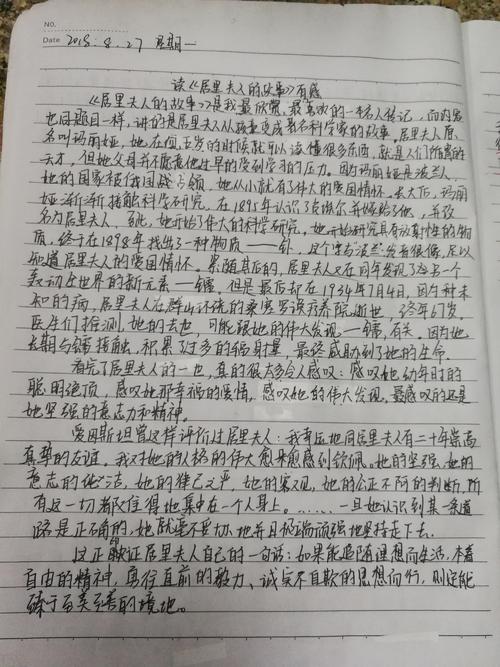 NO.
Date 2018.8.27 星期一
读《居里夫人的故事》有感
《居里夫人的故事》是我最欣赏、最喜欢的一本名人传记,而内容
也同题目一样,讲的是居里夫人从孩童变成著名科学家的故事。居里夫人原
名叫玛丽娅,她在四、五岁的时候就可以读懂很多东西,就是人们所常的
天才,但她父母并不愿意他过早的受到学习的压力。因玛丽娅是波兰人,
她的国家被俄国战占领,她从小就有了伟大的爱国情怀。长大后,玛丽
娅渐渐接触科学研究。在1895年认识了皮埃尔并嫁给了他,并改
名为居里夫人,至此,她开始了伟大的科学研究。她开始研究具有放射性的物
质,终于在1898年找出了一种物质——钋,这个字与"波兰"发音很像,足以
知道居里夫人的爱国情怀。紧随其后的,居里夫人又在同年发现了另一个
轰动全世界的新元素——镭,但是最后却在1934年7月4日,因为种未
知的病,居里夫人在群山环绕的桑塞罗谟疗养院逝世,终年67岁,
医生们推测,她的去世,可能跟她的伟大发现——镭,有关,因为她
长期与镭接触,积累过多的辐射量,最终威胁到了她的生命。
看完了居里夫人的一世,真的很大多令人感叹:感叹她幼年时的
聪明绝顶,感叹她那幸福的爱情,感叹她的伟大发现。最感叹的还是
她坚强的意志力和精神。
爱因斯坦曾这样评所过居里夫人:我幸运地同居里夫人有二十年崇高
真挚的友谊。我对她的人格的伟大愈来愈感到钦佩。她的坚强,她的
意志的纯洁,她的律己之严,她的客观,她的公正不阿的判断,所
有这一切都难得地集中在一个人身上。……一旦她认识到某一条道
路是正确的,她就毫不妥协地并且极端顽强地坚持走下去。
这正印证居里夫人自己的一句话:如果能追随理想而生活,本着
自由的精神,勇往直前的毅力、诚实不自欺的思想而行,则定能
臻于至美至善的境地。